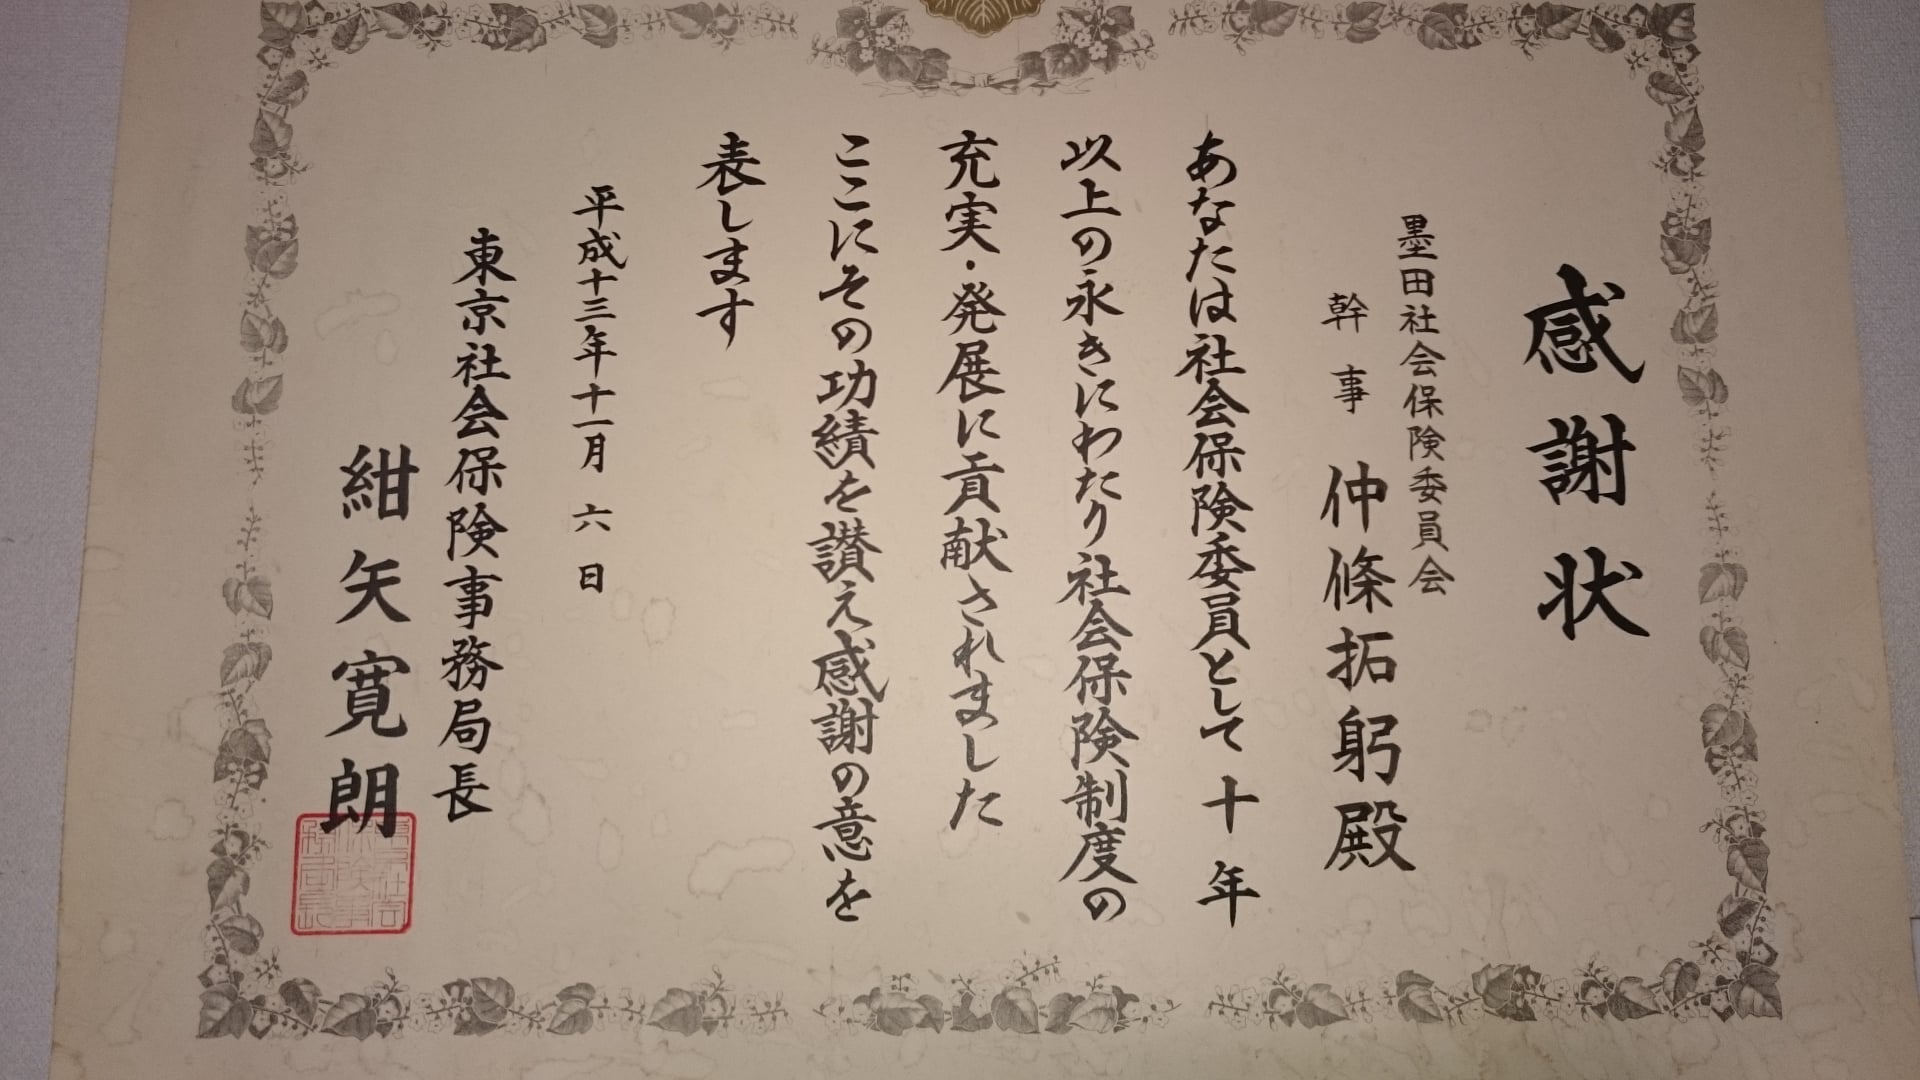 感謝状
墨田社会保険委員会
幹事 仲條拓躬殿
あなたは社会保険委員として十年
以上の永きにわたり社会保険制度の
充実・発展に貢献されました
ここにその功績を讃え感謝の意を
表します
平成十三年十一月六日
東京社会保険事務局長
紺矢寛朗